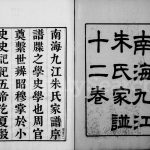 南海九江
朱氏家譜
十二卷
南海九江朱氏家譜序
譜牒之學史學也周官
奠繫世辨昭穆掌於小
史史記記五帝訖夏殷